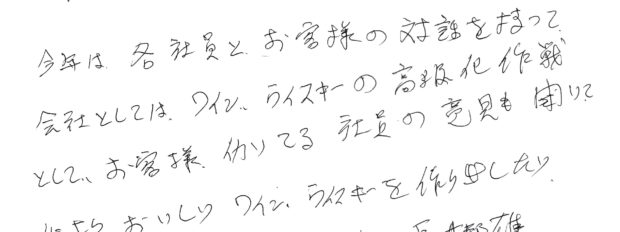 今年は、各社員と、お客様の対話を持って
会社としては、ワイン、ライスキーの高級化作戦
として、お客様、働いてる社員の意見も聞いて
おいしい ワイン、ライスキーを作り出したい
雄